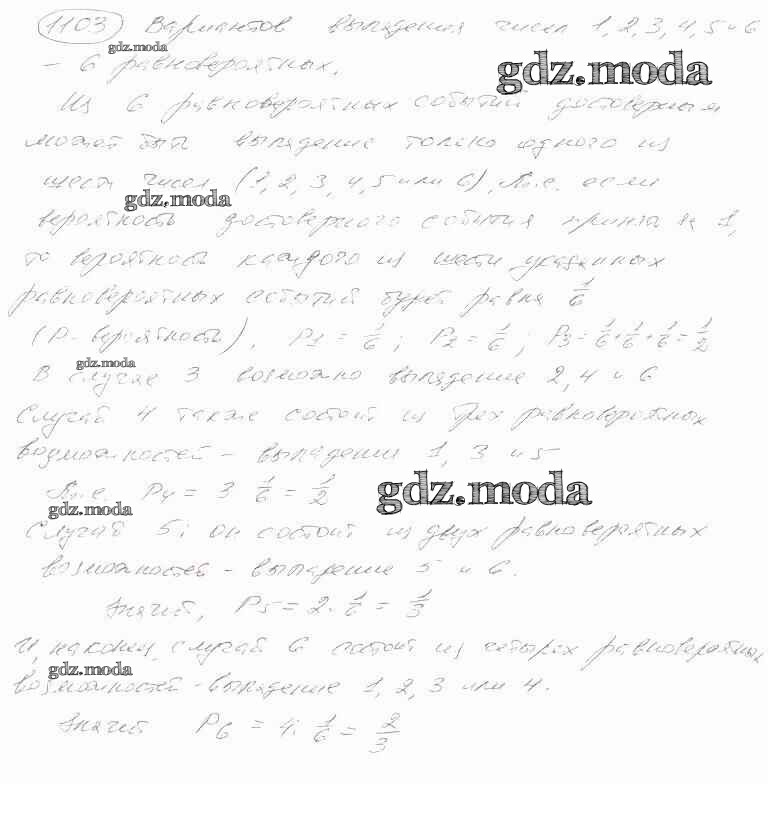 1103 Вариантов выпадения чисел 1, 2, 3, 4, 5 и 6
gdz.moda
- 6 равновероятных.
gdz.moda
Из 6 равновероятных событий достоверным
может быть выпадение только одного из
шести чисел (1, 2, 3, 4, 5 или 6), т.е. если
gdz.moda
вероятность достоверного события принять за 1,
то вероятность каждого из шести указанных
равновероятных событий будет равна 1/6
(P - вероятность), P1 = 1/6; P2 = 1/6; P3 = 1/6 + 1/6 + 1/6 = 1/2
gdz.moda
В случае 3 возможно выпадение 2, 4 и 6
Случай 4 также состоит из трех равновероятных
возможностей - выпадения 1, 3 и 5
Т.е. P4 = 3 1/6 = 1/2
gdz.moda
gdz.moda
Случай 5: он состоит из двух равновероятных
возможностей - выпадение 5 и 6.
Значит, P5 = 2 · 1/6 = 1/3
И, наконец, случай 6 состоит из четырех равновероятных
gdz.moda
возможностей - выпадение 1, 2, 3 или 4.
Значит P6 = 4 · 1/6 = 2/3